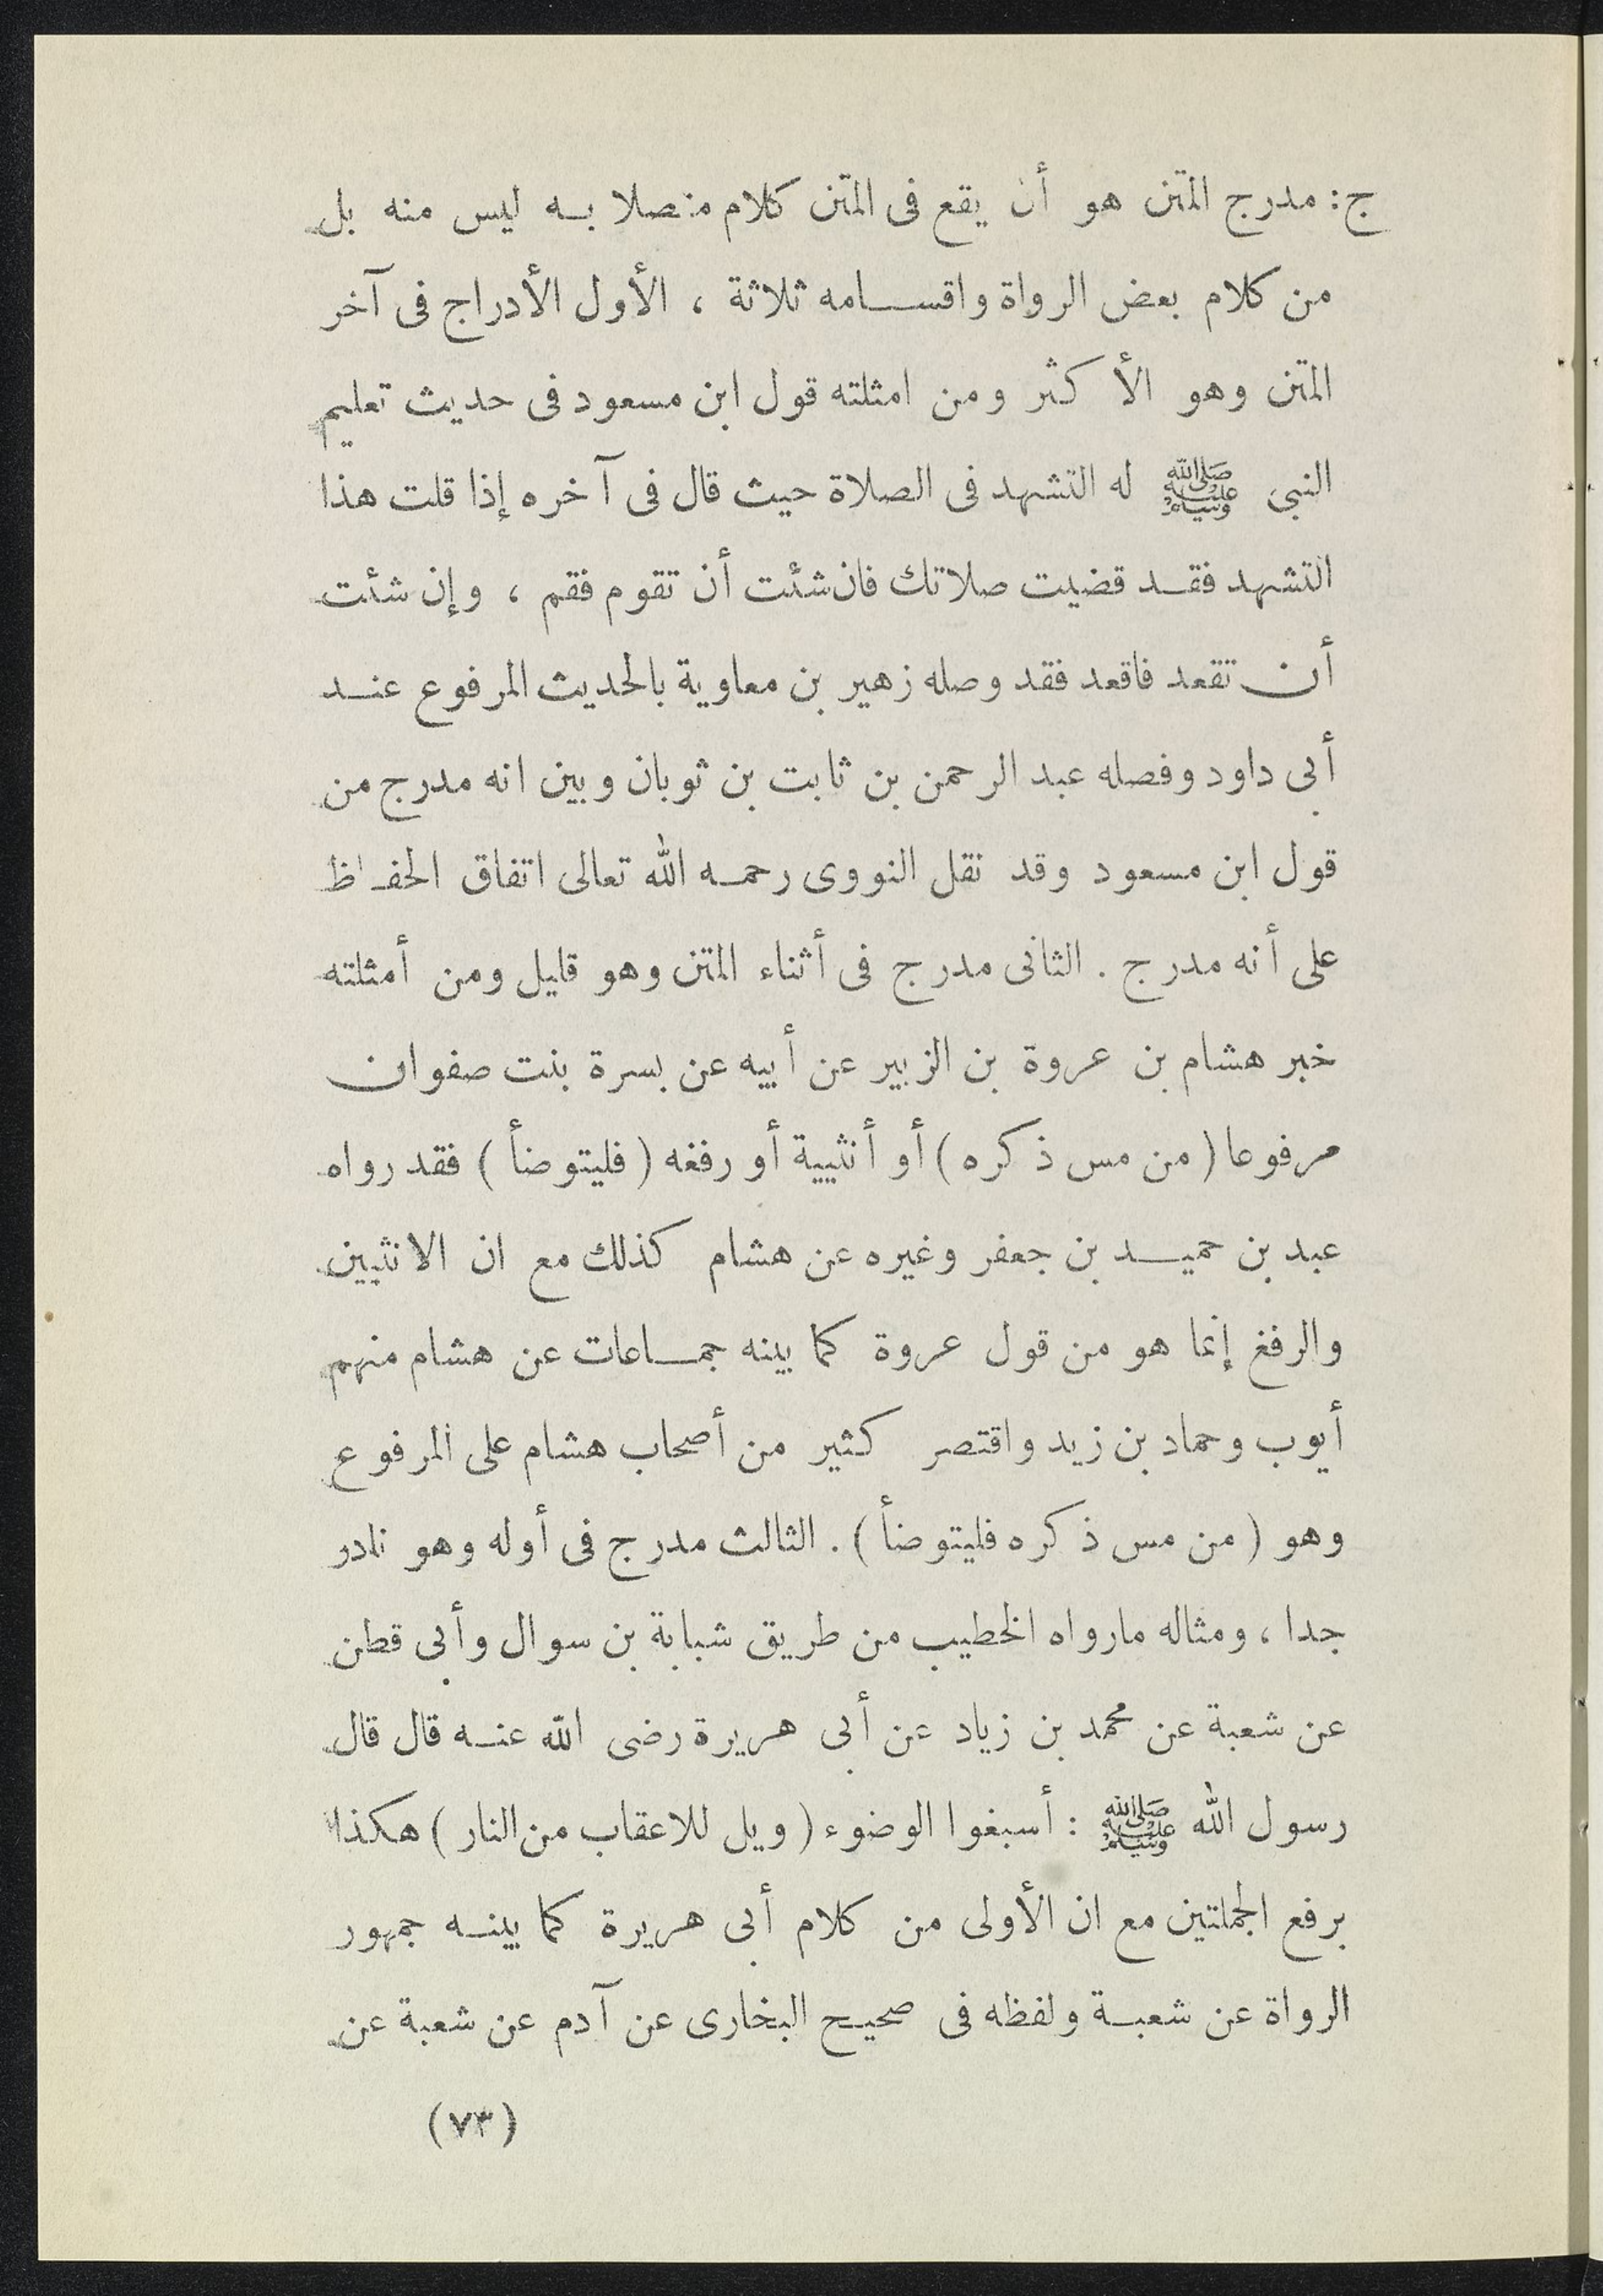 ج: مدرج المتن هو أن يقع فى المتن كلام متصلا به ليس منه بل
من كلام بعض الرواة واقسامه ثلاثة ، الأول الأدراج فى آخر
المتن وهو الأكثر ومن امثلته قول ابن مسعود فى حديث تعليم
النبى ﷺ له التشهد فى الصلاة حيث قال فى آخره إذا قلت هذا
التشهد فقد قضيت صلاتك فان شئت أن تقوم فقم ، وإن شئت
أن تقعد فاقعد فقد وصله زهير بن معاوية بالحديث المرفوع عند
أبى داود وفصله عبد الرحمن بن ثابت بن ثوبان وبين انه مدرج من
قول ابن مسعود وقد نقل النووى رحمه الله تعالى اتفاق الحفاظ
على أنه مدرج . الثانى مدرج فى أثناء المتن وهو قليل ومن أمثلته
خبر هشام بن عروة بن الزبير عن أبيه عن بسرة بنت صفوان
مرفوعا ( من مس ذكره ) أو أنثيية أو رفغه ( فليتوضأ ) فقد رواه
عبد بن حميد بن جعفر وغيره عن هشام كذلك مع ان الانثيين
والرفغ إنما هو من قول عروة كما بينه جماعات عن هشام منهم
أيوب وحماد بن زيد واقتصر كثير من أصحاب هشام على المرفوع
وهو ( من مس ذكره فليتوضأ ) . الثالث مدرج فى أوله وهو نادر
جدا ، ومثاله مارواه الخطيب من طريق شبابة بن سوال وأبى قطن
عن شعبة عن محمد بن زياد عن أبى هريرة رضى الله عنه قال قال
رسول الله ﷺ : أسبغوا الوضوء ( ويل للاعقاب من النار ) هكذا
برفع الجملتين مع ان الأولى من كلام أبى هريرة كما بينه جمهور
الرواة عن شعبة ولفظه فى صحيح البخارى عن آدم عن شعبة عن
(٧٣)